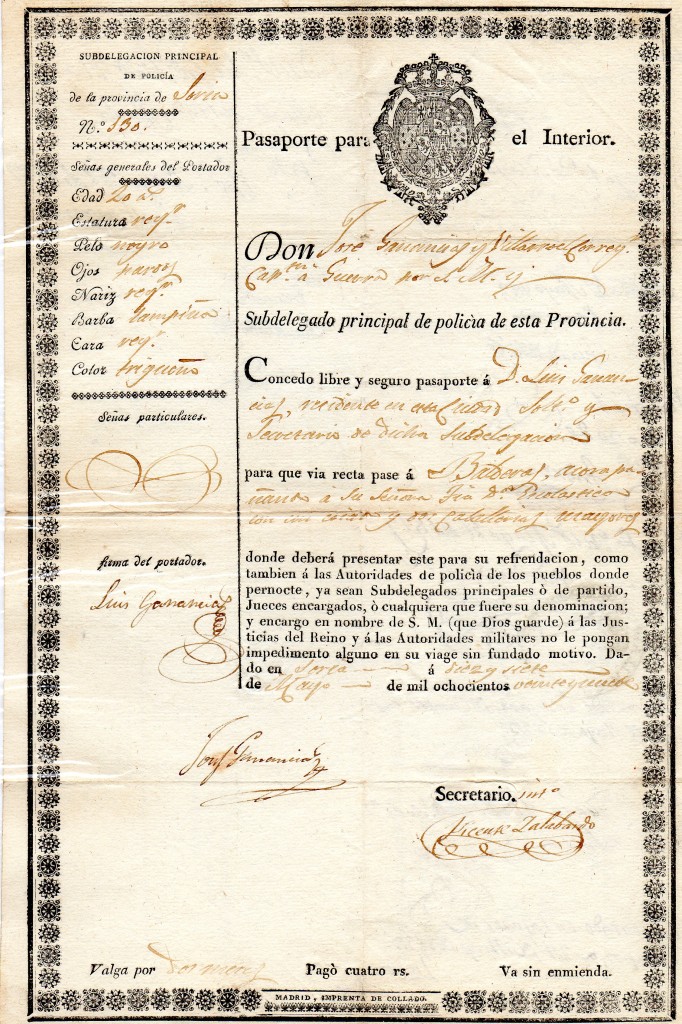 SUBDELEGACION PRINCIPAL
DE POLICÍA
de la provincia de Soria
N.º 530.
Señas generales del Portador
Edad 20 a.s
Estatura reg.r
Pelo negro
Ojos pardos
Nariz reg.r
Barba lampiña
Cara reg.r
Color trigueño
Señas particulares.
firma del portador.
Luis Ganancias
Pasaporte para el Interior.
Don José Ganancias y Villarroel Correg.r
Cap.tn á Guerra por S. M. y
Subdelegado principal de policìa de esta Provincia.
Concedo libre y seguro pasaporte á D. Luis Ganan-
cias, residente en esta Ciudad Solt.º y
Secretario de dicha Subdelegacion
para que via recta pase á acompa
ñando a su Señora Tia D.ª Escolastica
con un y dos Caballerias mayores
donde deberá presentar este para su refrendacion, como
tambien á las Autoridades de policìa de los pueblos donde
pernocte, ya sean Subdelegados principales ò de partido,
Jueces encargados, ò cualquiera que fuere su denominacion;
y encargo en nombre de S. M. (que Dios guarde) á las Jus-
ticias del Reino y á las Autoridades militares no le pongan
impedimento alguno en su viage sin fundado motivo. Da-
do en Soria á diez y siete
de Mayo de mil ochocientos veinte y
José Ganancias
Secretario. int.º
Vicente Zalabardo
Valga por dos meses Pagò cuatro rs. Va sin enmienda.
MADRID, IMPRENTA DE COLLADO.